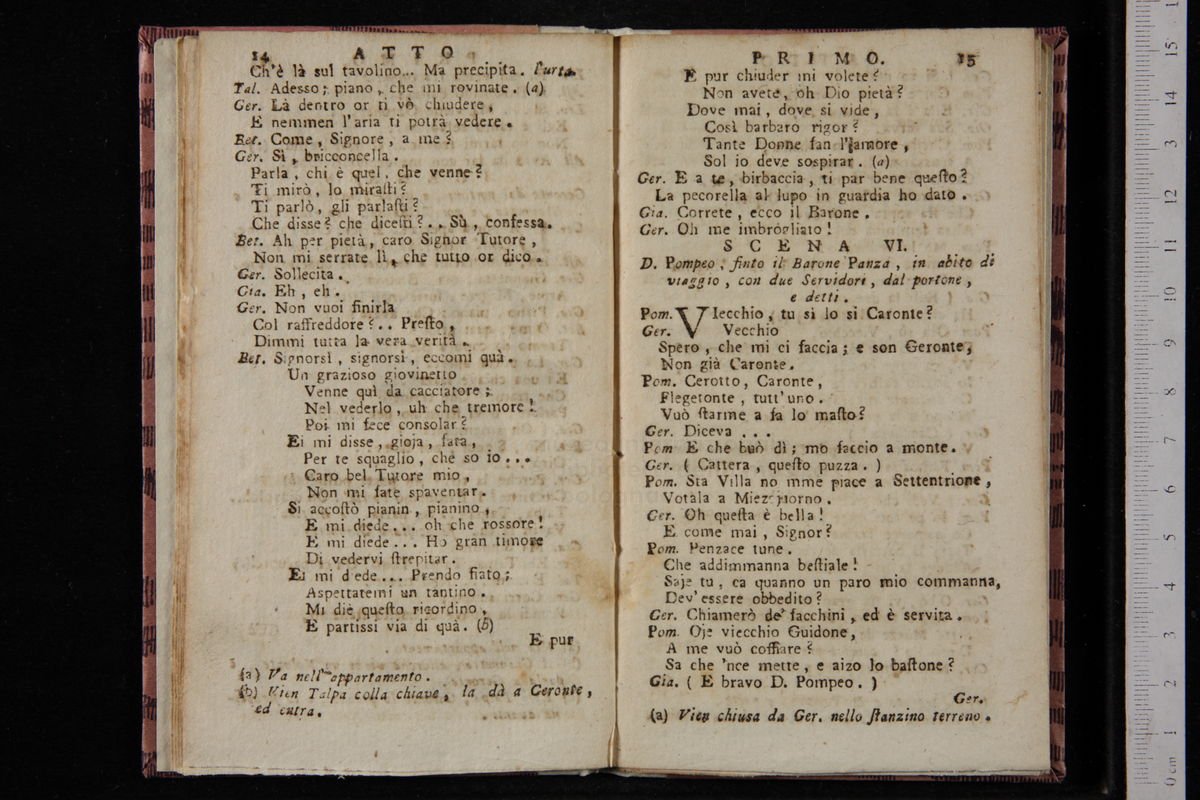 14 ATTO
Ch'è là sul tavolino... Ma precipita. l'urta.
Tal. Adesso; piano, che mi rovinate. (a)
Ger. Là dentro or ti vò chiudere,
E nemmen l'aria ti potrà vedere.
Bet. Come, Signore, a me?
Ger. Sì, bricconcella.
Parla, chi è quel, che venne?
Ti mirò, lo miraſti?
Ti parlò, gli parlaſti?
Che disse? che diceſti?.. Sù, confessa.
Bet. Ah per pietà, caro Signor Tutore,
Non mi serrate lì, che tutto or dico.
Ger. Sollecita.
Gia. Eh, eh.
Ger. Non vuoi finirla
Col raffreddore?.. Preſto,
Dimmi tutta la vera verità.
Bet. Signorsì, signorsì, eccomi quà.
Un grazioso giovinetto
Venne quì da cacciatore;
Nel vederlo, uh che tremore!
Poi mi fece consolar?
Ei mi disse, gioja, fata,
Per te squaglio, che so io...
Caro bel Tutore mio,
Non mi fate spaventar.
Si accoſtò pianin, pianino,
E mi diede... oh che rossore!
E mi diede... Ho gran timore
Di vedervi ſtrepitar.
Ei mi diede... Prendo fiato;
Aspettatemi un tantino.
Mi diè queſto ricordino,
E partissi via di quà. (b)
E pur
(a) Va nell'appartamento.
(b) Vien Talpa colla chiave, la dà a Geronte,
ed entra.
PRIMO. 15
E pur chiuder mi volete?
Non avete, oh Dio pietà?
Dove mai, dove si vide,
Così barbaro rigor?
Tante Donne fan l'amore,
Sol io deve sospirar. (a)
Ger. E a te, birbaccia, ti par bene queſto?
La pecorella al lupo in guardia ho dato.
Gia. Correte, ecco il Barone.
Ger. Oh me imbrogliato!
SCENA VI.
D. Pompeo, finto il Barone Panza, in abito di
viaggio, con due Servidori, dal portone,
e detti.
Pom. VIecchio, tu si lo si Caronte?
Ger. Vecchio
Spero, che mi ci faccia; e son Geronte,
Non già Caronte.
Pom. Cerotto, Caronte,
Flegetonte, tutt'uno.
Vuò ſtarme a fa lo maſto?
Ger. Diceva...
Pom E che buò dì; mo faccio a monte.
Ger. (Cattera, queſto puzza.)
Pom. Sta Villa no mme piace a Settentrione,
Votala a Miezojorno.
Ger. Oh queſta è bella!
E come mai, Signor?
Pom. Penzace tune.
Che addimmanna beſtiale!
Saje tu, ca quanno un paro mio commanna,
Dev'essere obbedito?
Ger. Chiamerò de' facchini, ed è servita.
Pom. Oje viecchio Guidone,
A me vuò coffiare?
Sa che 'nce mette, e aizo lo baſtone?
Gia. (E bravo D. Pompeo.)
Ger.
(a) Vien chiusa da Ger. nello ſtanzino terreno.
15
14
13
12
11
10
9
8
7
6
5
4
3
2
1
0 cm